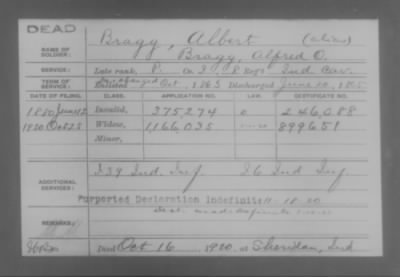 DEAD
NAME OF SOLDIER: Bragg, Albert (alias)
Bragg, Alfred O.
SERVICE: Late rank, P. Co. I, 8 Reg't Ind. Cav.
TERM OF SERVICE: Enlisted Oct, 1863 Discharged June 10, 1865
DATE OF FILING. CLASS. APPLICATION NO. LAW. CERTIFICATE NO.
1880 June 12 Invalid, 375274 246,088
1920 Oct 25 Widow, 1,166,035 899651
Minor,
ADDITIONAL SERVICES: I 39 Ind. Inf. I 6 Ind Inf
Purported Declaration Indefinite
REMARKS:
Died Oct 16, 1920, at Sheridan, Ind